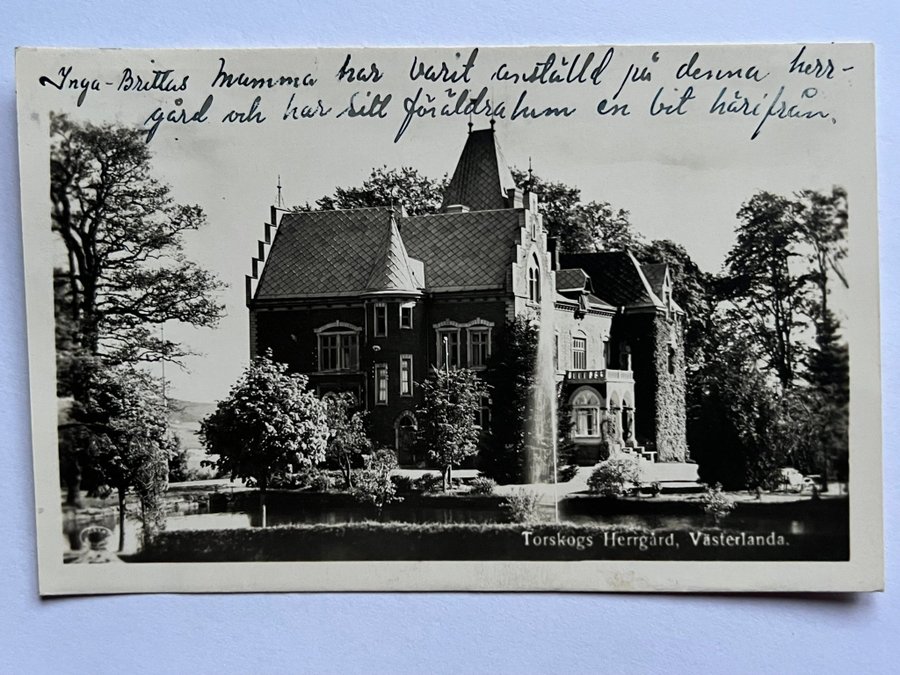 Inga-Brittas Mamma har varit anställd på denna herr-
gård och har sitt föräldrahem en bit härifrån.
Torskogs Herrgård, Västerlanda.